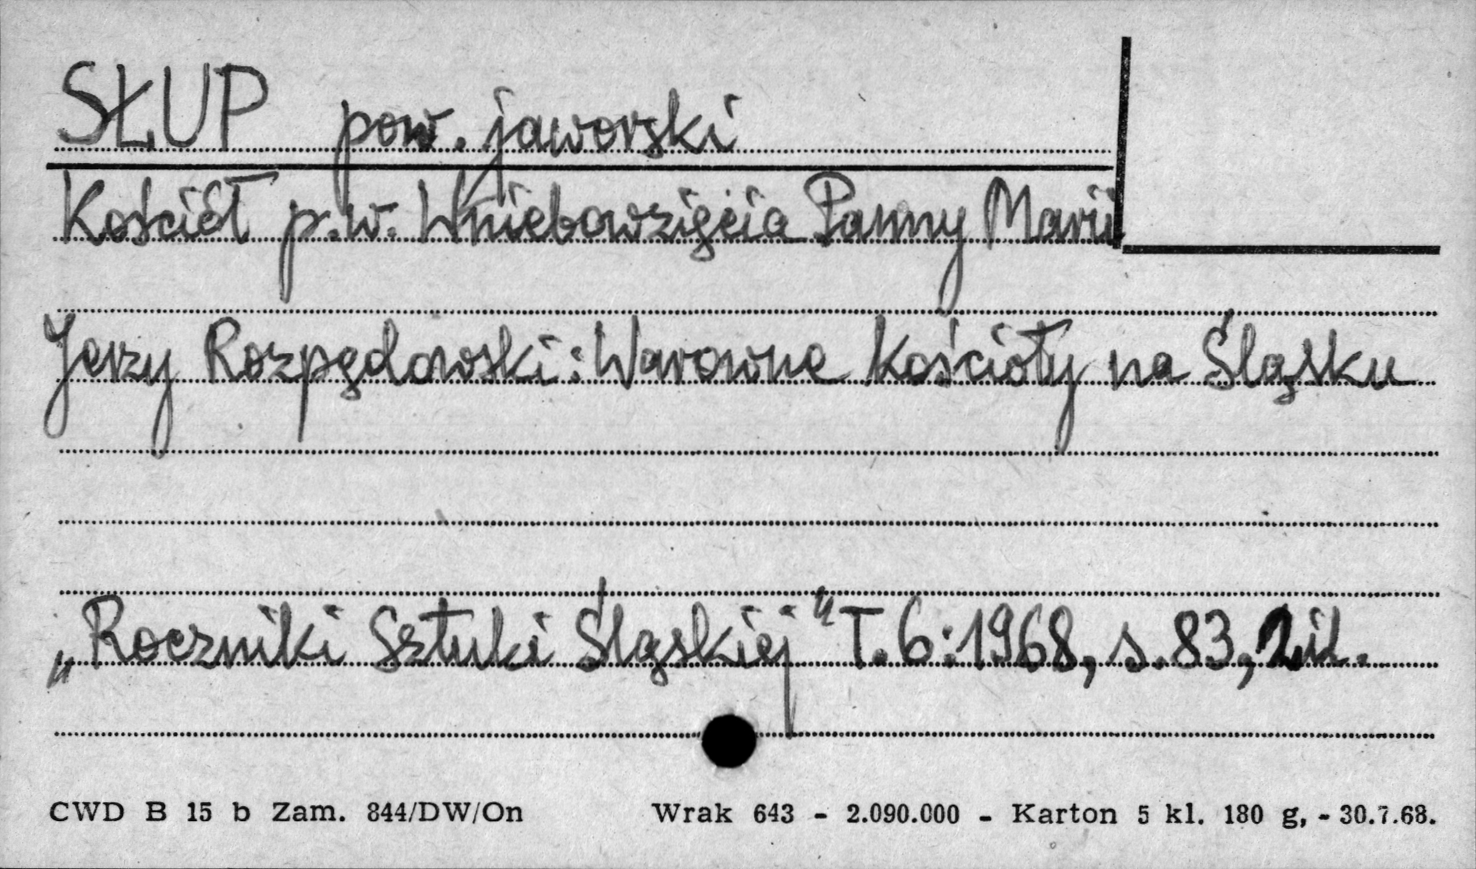 SŁUP pow. jaworski
Kościół p.w. Wniebowzięcia Panny Marii
Jerzy Rozpędowski: Warowne kościoły na Śląsku
„Roczniki Sztuki Śląskiej" T.6:1968, s.83, 2 il.
CWD B 15 b Zam. 844/DW/On Wrak 643 - 2.090.000 - Karton 5 kl. 180 g, - 30.7.68.